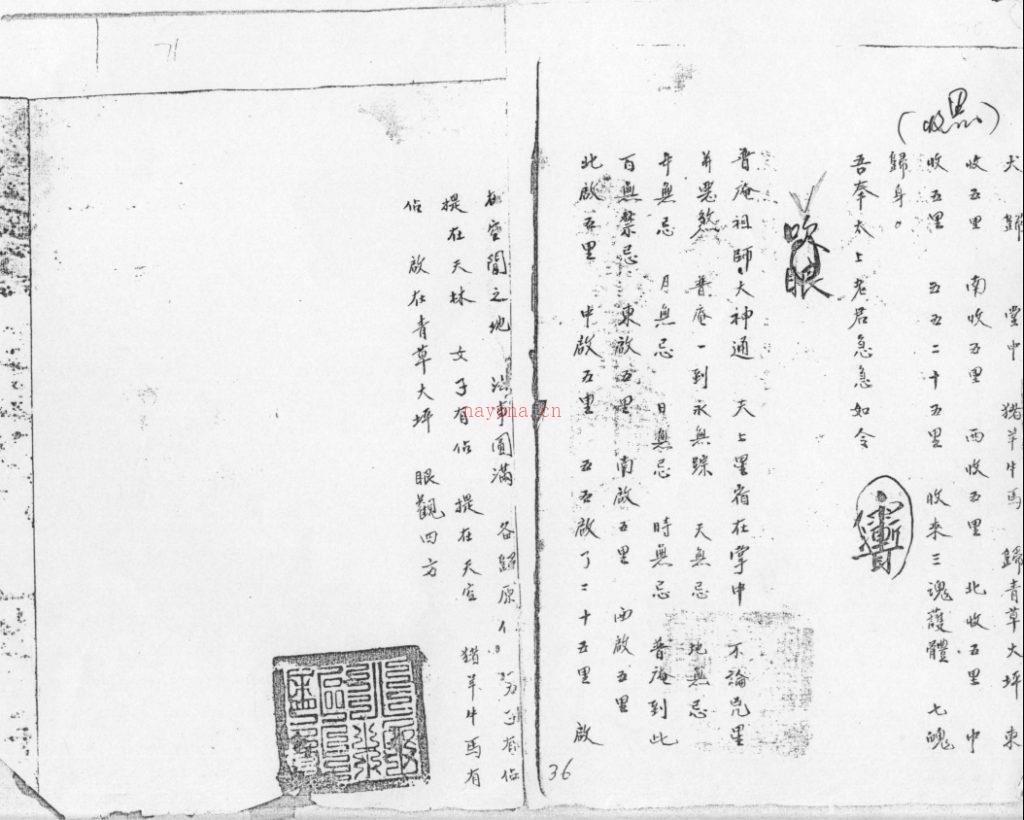 犬歸 堂中 猪羊牛馬 歸青草大坪 東
收五里 南收五里 西收五里 北收五里 中
收五里 五五二十五里 收來三魂護體 七魄
歸身。
吾奉太上老君急急如令
眼
普庵祖師大神通 天上星宿在掌中 不論兇星
并惡煞 普庵一到永無踪 天無忌 地無忌
年無忌 月無忌 日無忌 時無忌 普庵到此
百無禁忌 東啟五里 南啟五里 西啟五里
北啟五里 中啟五里 五五啟了二十五里 啟
在空間之地 法事圓滿 各歸原
提在天 女子有佔 提在天空 猪羊牛馬有
佔 啟在青草大坪 眼觀四方
36
71
nayona.cn